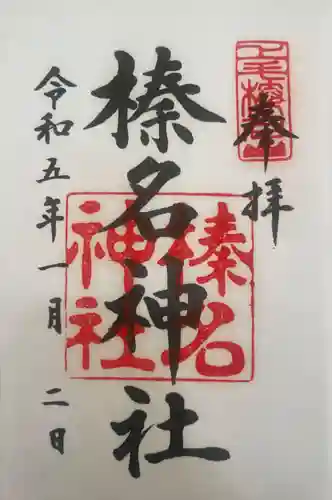 上毛榛名山
奉拝
榛名神社
榛名神社
令和五年一月二日